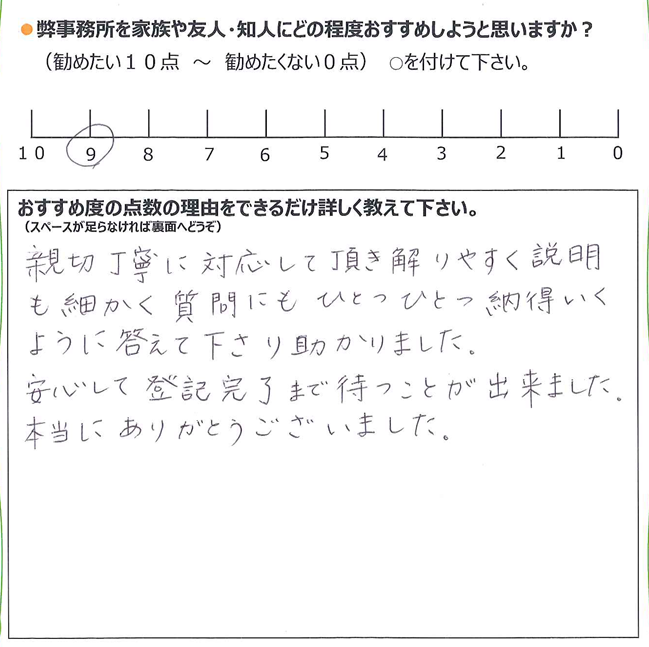 ●弊事務所を家族や友人・知人にどの程度おすすめしようと思いますか？
（勧めたい１０点　～　勧めたくない０点）　○を付けて下さい。
10 9 8 7 6 5 4 3 2 1 0
おすすめ度の点数の理由をできるだけ詳しく教えて下さい。
（スペースが足らなければ裏面へどうぞ）
親切丁寧に対応して頂き解りやすく説明
も細かく質問にもひとつひとつ納得いく
ように答えて下さり助かりました。
安心して登記完了まで待つことが出来ました。
本当にありがとうございました。